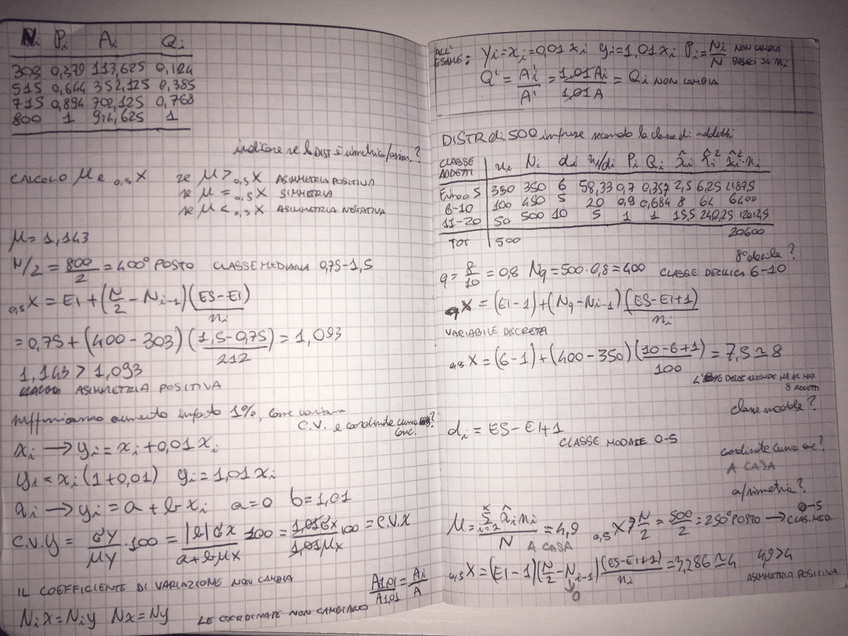 Ni Pi Ai Qi
303 0,379 113,625 0,124
515 0,644 352,125 0,385
715 0,894 702,125 0,768
800 1 914,625 1
indicare se la DIST è simmetrica/asim.?
CALCOLO M e 0,5X se M > 0,5X ASIMMETRIA POSITIVA
se M = 0,5X SIMMETRIA
se M < 0,5X ASIMMETRIA NEGATIVA
M = 1,143
N/2 = 800/2 = 400° POSTO CLASSE MEDIANA 0,75-1,5
0,5X = EI + (N/2 - Ni-1) (ES-EI)/ni
= 0,75 + (400 - 303) (1,5-0,75)/212 = 1,093
1,143 > 1,093
ASIMMETRIA POSITIVA
aumento 1%, come
C.V. e coordinate conc.?
xi → yi = xi + 0,01 xi
yi = xi (1+0,01) yi = 1,01 xi
xi → yi = a + b xi a=0 b=1,01
C.V.Y = σY/MY · 100 = |b|σx/a+bMx 100 = 1,01σx/1,01Mx 100 = C.V.X
IL COEFFICIENTE DI VARIAZIONE NON CAMBIA
A1,01/A1,01 = Ai/A
Nix = Niy Nx = Ny LE COORDINATE NON CAMBIANO
ALL'ESAME: yi = xi = 0,01 xi yi = 1,01 xi Pi = Ni/N NON CAMBIA
Q' = A'i/A' = 1,01Ai/1,01A = Qi NON CAMBIA
DISTR di 500 imprese secondo la classe di addetti
CLASSE ADDETTI ni Ni di ni/di Pi Qi x̂i x̂i² x̂i²·ni
Fino a 5 350 350 6 58,33 0,7 0,357 2,5 6,25
6-10 100 450 5 20 0,9 0,684 8 64 6400
11-20 50 500 10 5 1 1 15,5 240,25
TOT 500 20600
8° decile?
q = 8/10 = 0,8 Nq = 500·0,8 = 400 CLASSE DECILICA 6-10
qX = (EI-1) + (Nq-Ni-1) (ES-EI+1)/ni
VARIABILE DISCRETA
0,8X = (6-1) + (400-350) (10-6+1)/100 = 7,5 ≃ 8
classe modale?
di = ES - EI + 1
CLASSE MODALE 0-5
coordinate conc?
A CASA
asimmetria?
M = Σ x̂i ni/N = 4,9 0,5X? N/2 = 500/2 = 250° POSTO → 0-5 CLAS. MED.
A CASA
0,5X = (EI-1) (N/2 - Ni-1) (ES-EI+1)/ni = 3,286 ≃ 4 4,9>4
0
ASIMMETRIA POSITIVA